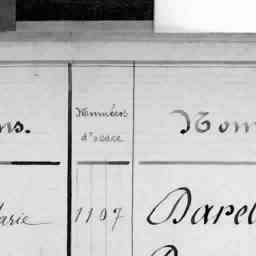 ms. Numéros Nom
d'ordre
arie 1107 Darel